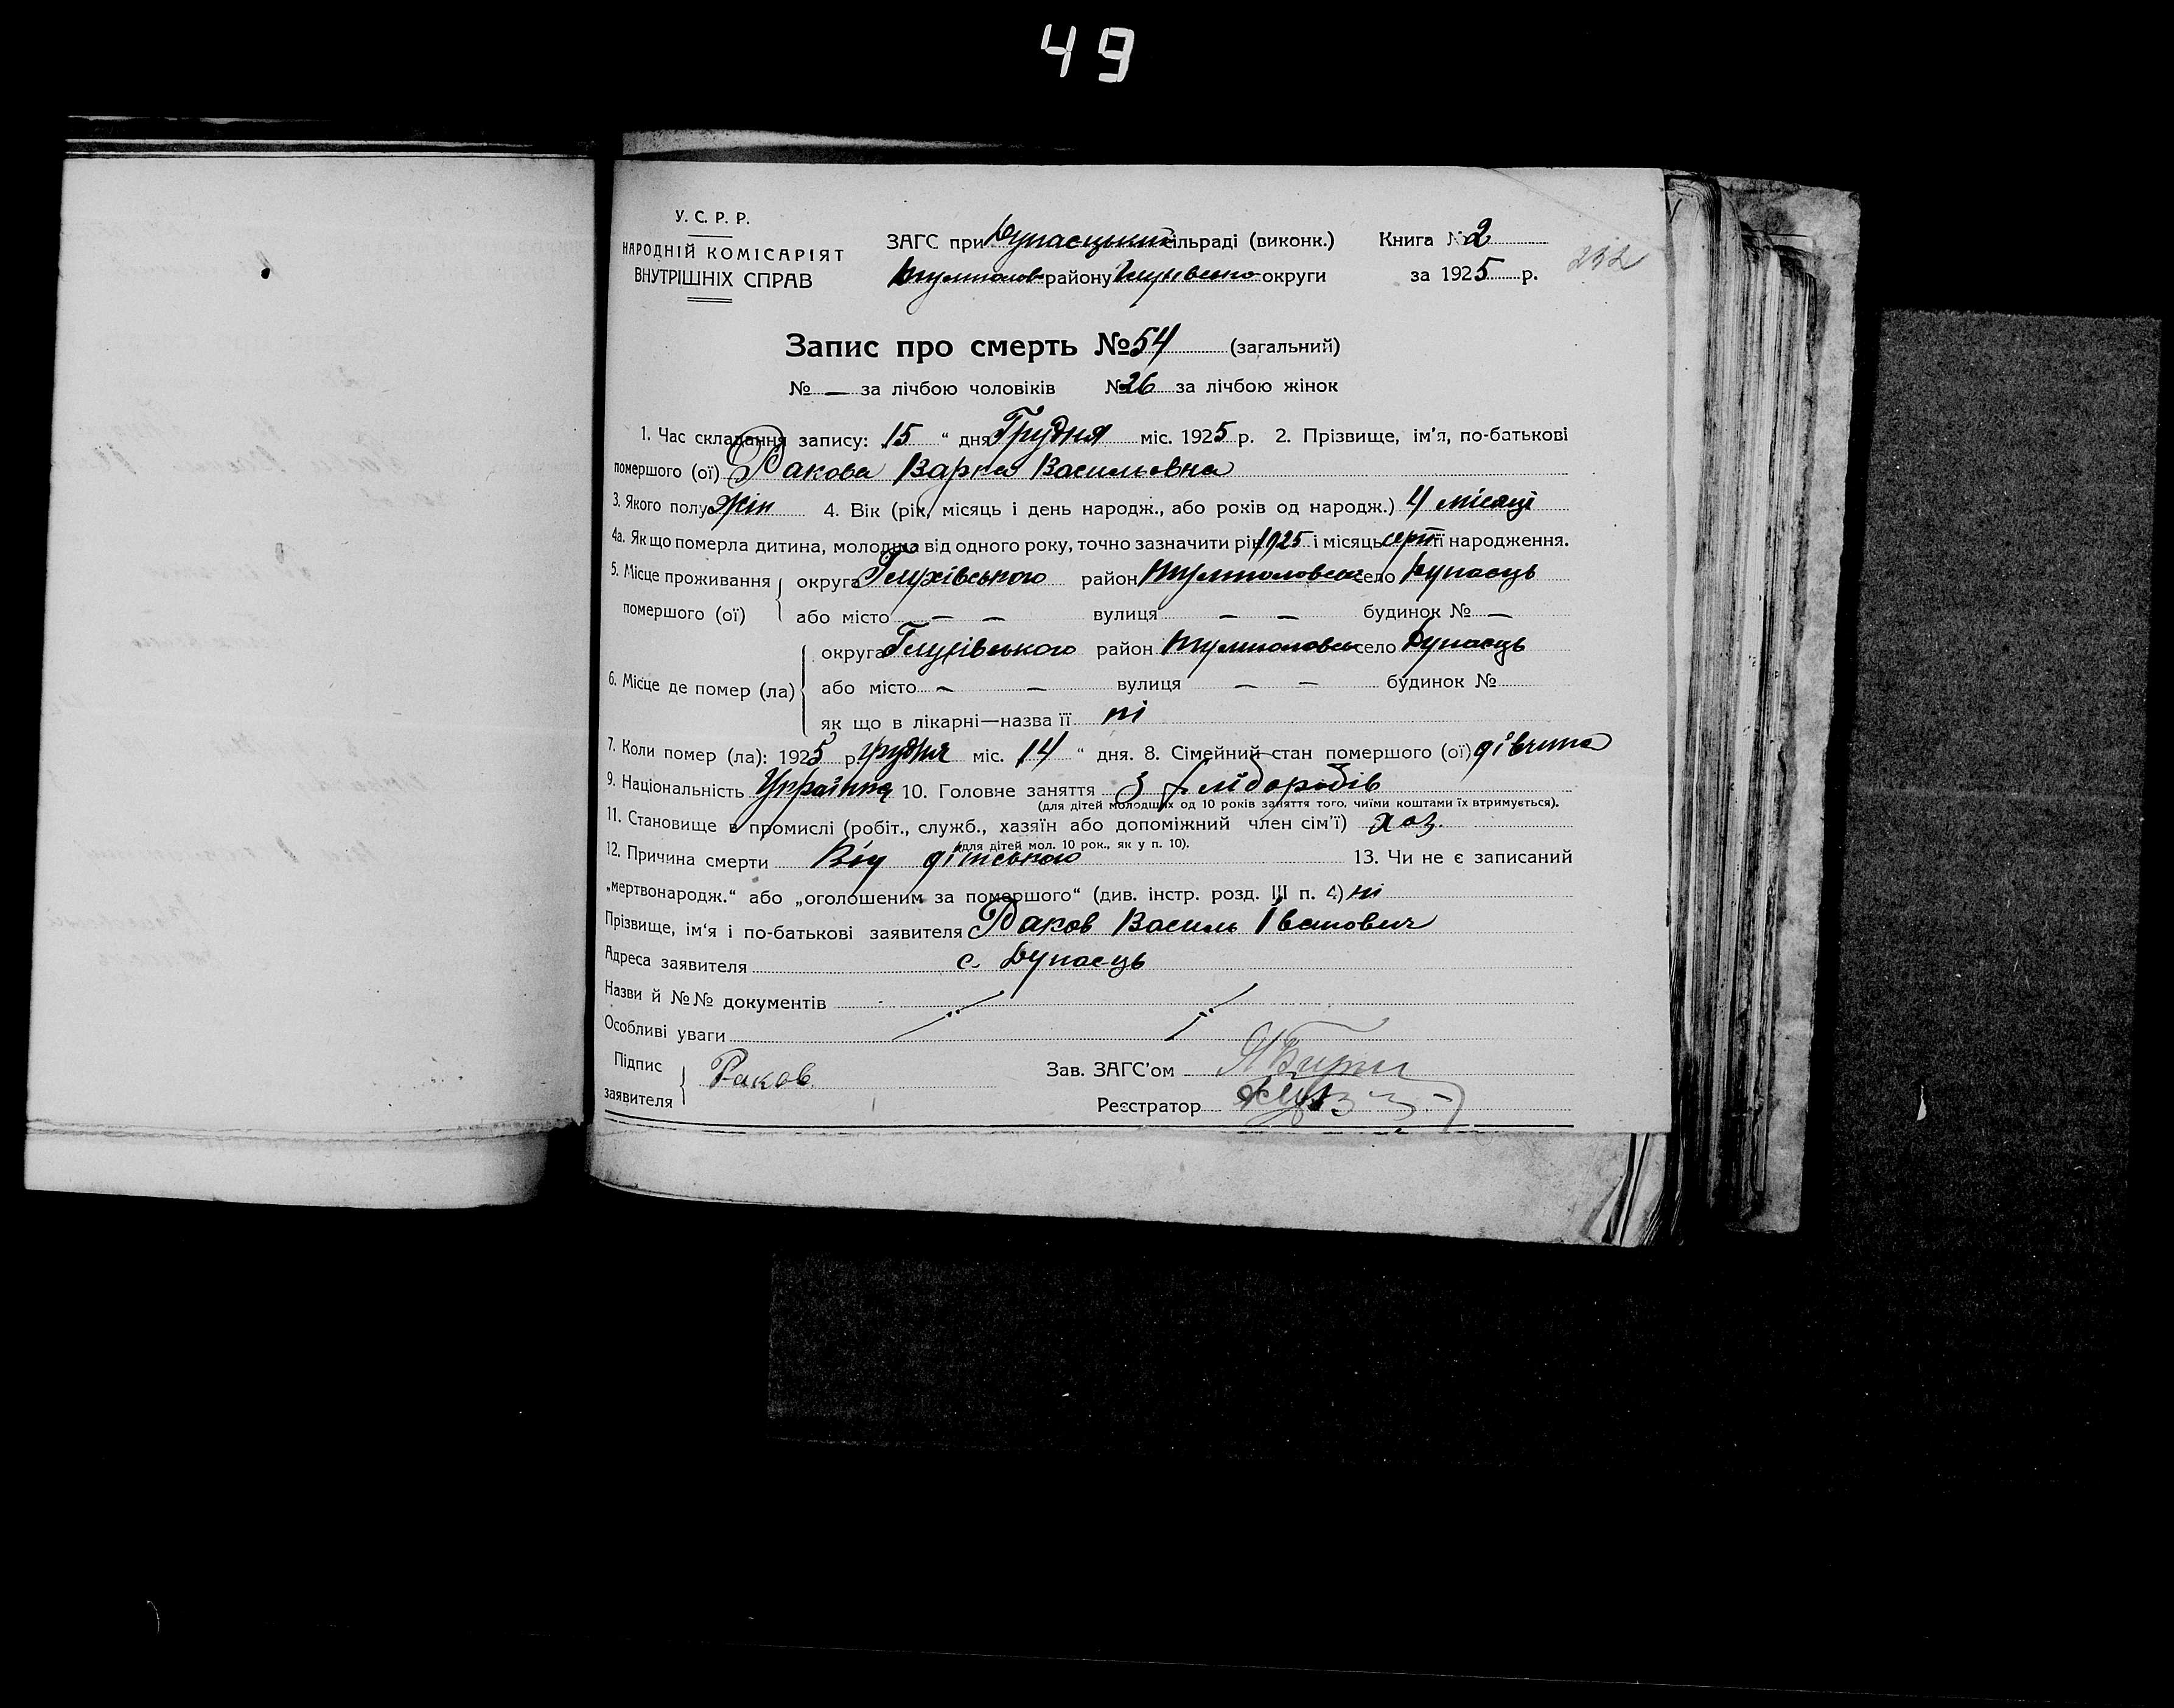 49
У. С. Р. Р.
НАРОДНІЙ КОМІСАРІЯТ
ВНУТРІШНІХ СПРАВ
ЗАГС при Дунаєцький сільраді (виконк.) Книга № 2
району округи за 1925 р.
Запис про смерть № 54 (загальний)
№ — за лічбою чоловіків № 26 за лічбою жінок
1. Час складання запису: 15 “ дня Грудня міс. 1925 р. 2. Прізвище, ім'я, по-батькові
помершого (ої) Ракова Варка Васильовна
3. Якого полу жін 4. Вік (рік, місяць і день народж., або років од народж.) 4 місяці
4а. Як що померла дитина, молодша від одного року, точно зазначити рік 1925 і місяць серп її народження.
5. Місце проживання округа Глухівського район село Дунаєць
помершого (ої) або місто — — вулиця — — будинок № —
округа Глухівського район село Дунаєць
6. Місце де помер (ла) або місто — — вулиця — — будинок №
як що в лікарні—назва її ні
7. Коли помер (ла): 1925 р. грудня міс. 14 “ дня. 8. Сімейний стан помершого (ої) дівчина
9. Національність Українка 10. Головне заняття З хліборобів
(для дітей молодших од 10 років заняття того, чиїми коштами їх втримується).
11. Становище в промислі (робіт., служб., хазяїн або допоміжний член сім'ї) хаз.
(для дітей мол. 10 рок., як у п. 10).
12. Причина смерти Від дітського 13. Чи не є записаний
„мертвонародж.“ або „оголошеним за помершого“ (див. інстр. розд. III п. 4) ні
Прізвище, ім'я і по-батькові заявителя Раков Василь Іванович
Адреса заявителя с. Дунаєць
Назви й №№ документів
Особливі уваги
Підпис
заявителя Раков
Зав. ЗАГС'ом
Реєстратор